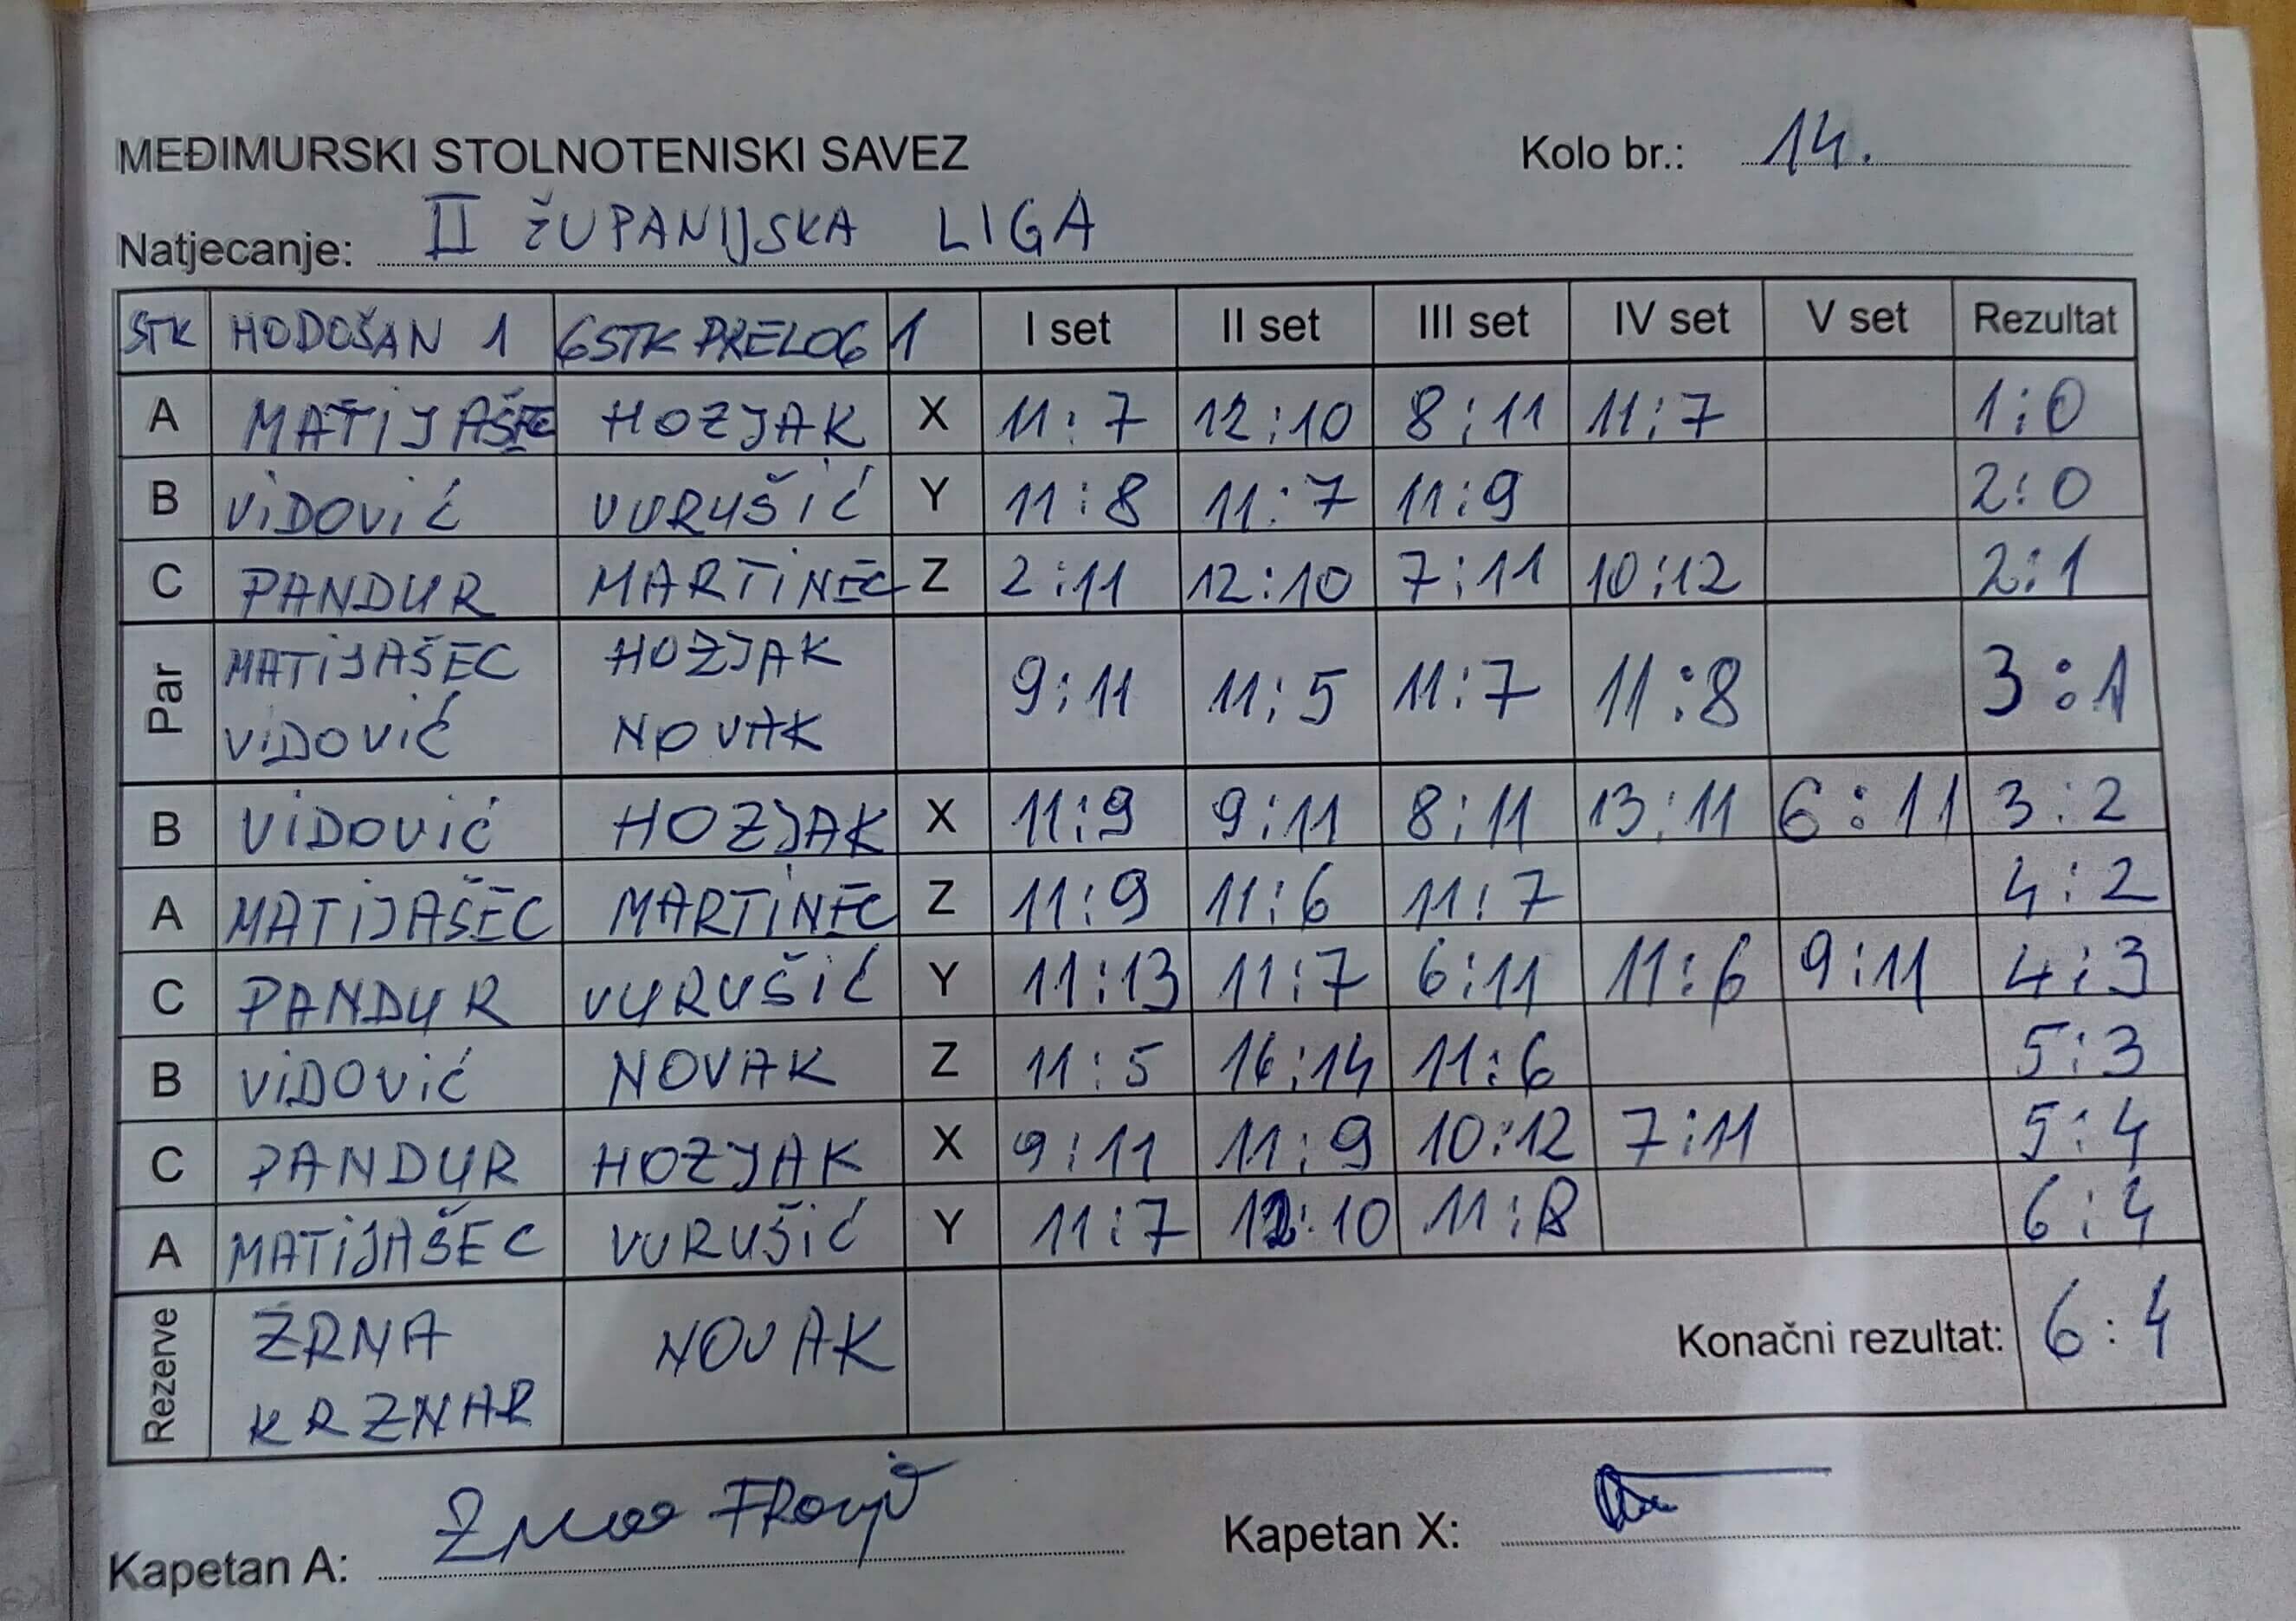 MEĐIMURSKI STOLNOTENISKI SAVEZ Kolo br.: 14.
Natjecanje: II ŽUPANIJSKA LIGA
STK HODOŠAN 1 GSTK PRELOG 1 I set II set III set IV set V set Rezultat
A MATIJAŠEC HOZJAK X 11:7 12:10 8:11 11:7 1:0
B VIDOVIĆ VURUŠIĆ Y 11:8 11:7 11:9 2:0
C PANDUR MARTINEC Z 2:11 12:10 7:11 10:12 2:1
Par MATIJAŠEC HOZJAK 9:11 11:5 11:7 11:8 3:1
VIDOVIĆ NOVAK
B VIDOVIĆ HOZJAK X 11:9 9:11 8:11 13:11 6:11 3:2
A MATIJAŠEC MARTINEC Z 11:9 11:6 11:7 4:2
C PANDUR VURUŠIĆ Y 11:13 11:7 6:11 11:6 9:11 4:3
B VIDOVIĆ NOVAK Z 11:5 16:14 11:6 5:3
C PANDUR HOZJAK X 9:11 11:9 10:12 7:11 5:4
A MATIJAŠEC VURUŠIĆ Y 11:7 12:10 11:8 6:4
Rezerve ZRNA NOVAK Konačni rezultat: 6:4
KRZNAR
Kapetan A: Kapetan X: